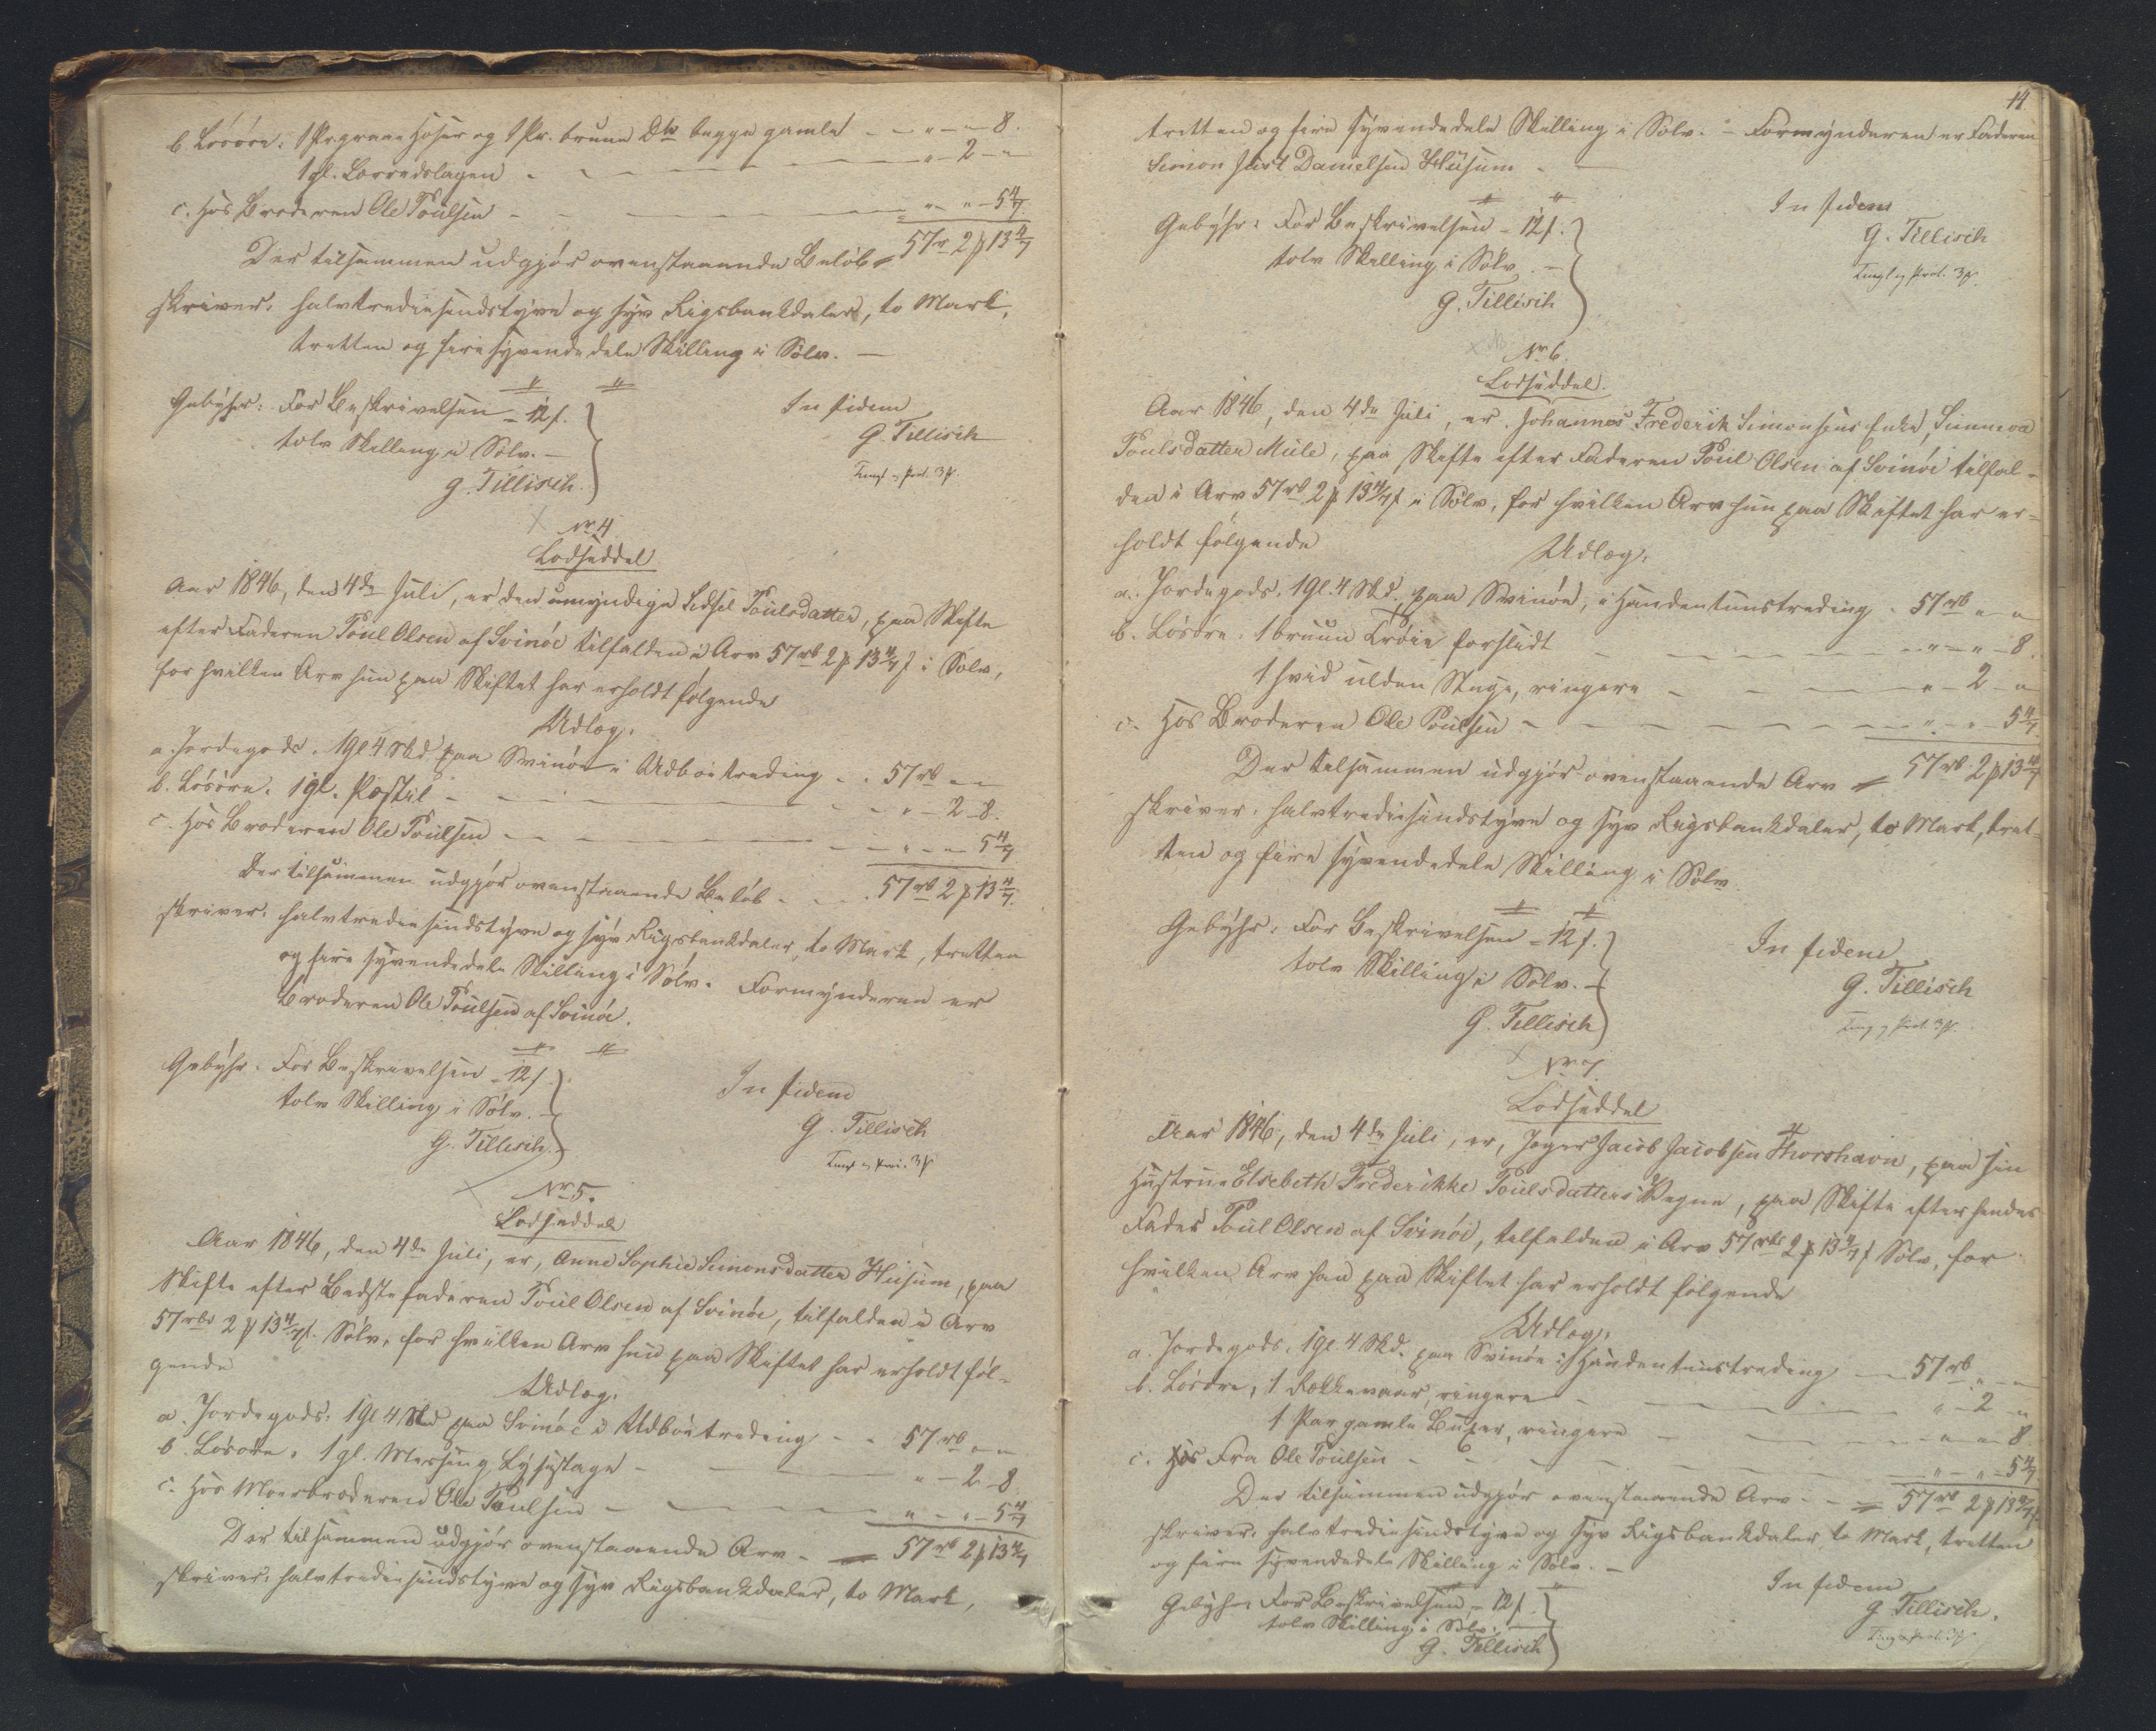 b. Løsøre: 1 Pr. graae Hoser og 1 Pr. bruun Dto begge gamle - - " - " - 8.
1 gl. Lærredslagen - - - " - 2 - "
c. Hos Broderen Ole Poulsen - - - " - " - 5 4/7
Der tilsammen udgjør ovenstaaende Beløb = 57 rb 2 ℔ 13 4/7
skriver: halvtredsindstyve og syv Rigsbankdaler, to Mark,
tretten og fire syvendedele Skilling i Sølv. —
Gebyhr: For Beskrivelsen = 12 s.
tolv Skilling i Sølv. —
G. Tillisch.
In fidem
G. Tillisch
No 4
Lodseddel
Aar 1846, den 4de Juli, er den umyndige Sidsel Poulsdatter, paa Skifte
efter Faderen Poul Olsen af Svinöe tilfalden i Arv 57 rb 2 ℔ 13 4/7 s i Sølv,
for hvilken Arv hun paa Skiftet har erholdt følgende
Udlæg.
a. Jordegods. 1 Gl. 4 Skd. paa Svinöe i Udböitreding - - 57 rb " "
b. Løsøre. 1 gl. Postil - - - " - 2 - 8.
c. Hos Broderen Ole Poulsen - - - " - " - 5 4/7
Der tilsammen udgjør ovenstaaende Beløb - - 57 rb 2 ℔ 13 4/7
skriver: halvtredsindstyve og syv Rigsbankdaler, to Mark, tretten
og fire syvendedele Skilling i Sølv. Formynderen er
Broderen Ole Poulsen af Svinöe.
Gebyhr. For Beskrivelsen = 12 s.
tolv Skilling i Sølv. —
G. Tillisch.
In fidem
G. Tillisch
No 5.
Lodseddel
Aar 1846, den 4de Juli, er, Anne Sophie Simonsdatter Husum, paa
Skifte efter Bedstefaderen Poul Olsen af Svinöe, tilfalden i Arv
57 rbd 2 ℔ 13 4/7 s. Sølv, for hvilken Arv hun paa Skiftet har erholdt føl-
gende
Udlæg.
a. Jordegods: 1 Gl. 4 Skd paa Svinöe i Udböitreding - - 57 rb " "
b. Løsøre. 1 gl. Messing Lysestage - - " - 2 - 8
c. Hos Moerbroderen Ole Poulsen - - - " - " - 5 4/7
Der tilsammen udgjør ovenstaaende Arv - = 57 rb 2 ℔ 13 4/7
skriver: halvtredsindstyve og syv Rigsbankdaler, to Mark,
14
tretten og fire syvendedele Skilling i Sølv. - Formynderen er Faderen
Simon Just Danielsen Husum -
Gebyhr: For Beskrivelsen - 12 s.
tolv Skilling i Sølv. —
G. Tillisch
In fidem
G. Tillisch
No 6.
Lodseddel.
Aar 1846, den 4de Juli, er, Johannes Frederik Simonsens Enke, Sunneva
Poulsdatter Mule, paa Skifte efter Faderen Poul Olsen af Svinöe tilfal-
den i Arv 57 rb 2 ℔ 13 4/7 s i Sølv, for hvilken Arv hun paa Skiftet har er-
holdt følgende
Udlæg.
a. Jordegods. 1 Gl. 4 Skd. paa Svinöe, i Handentunstreding. 57 rb " "
b. Løsøre. 1 bruun Trøie forslidt - - - " - " - 8.
1 hvid ulden Stuge, ringere - - - " - 2 - "
c. Hos Broderen Ole Poulsen - - - " - " 5 4/7
Der tilsammen udgjør ovenstaaende Arv = 57 rb. 2 ℔ 13 4/7
skriver. halvtredsindstyve og syv Rigsbankdaler, to Mark, tret-
ten og fire syvendedele Skilling i Sølv
Gebyhr: For Beskrivelsen = 12 s.
tolv Skilling i Sølv. —
G. Tillisch
In fidem
G. Tillisch
No 7
Lodseddel
Aar 1846, den 4de Juli, er, Jæger Jacob Jacobsen Thorshavn, paa sin
Hustrue Elsebeth Frederikke Poulsdatters Vegne, paa Skifte efter hendes
Fader Poul Olsen af Svinöe, tilfalden i Arv 57 rbd 2 ℔ 13 4/7 s Sølv, for
hvilken Arv han paa Skiftet har erholdt følgende
Udlæg.
a. Jordegods. 1 Gl. 4 Skd. paa Svinöe i Handentunstreding - 57 rb " "
b. Løsøre, 1 Rokkevaar, ringere - - - " - 2 "
1 Par gamle Buxer, ringere - - - " - " 8
c. Hos Fra Ole Poulsen - - - " - " - 5 4/7
Der tilsammen udgjør ovenstaaende Arv - - = 57 rb 2 ℔ 13 4/7
skriver: halvtredsindstyve og syv Rigsbankdaler to Mark, tretten
og fire syvendedele Skilling i Sølv. —
Gebyhr: For Beskrivelsen, - 12 s.
tolv Skilling i Sølv. —
G. Tillisch
In fidem
G. Tillisch.